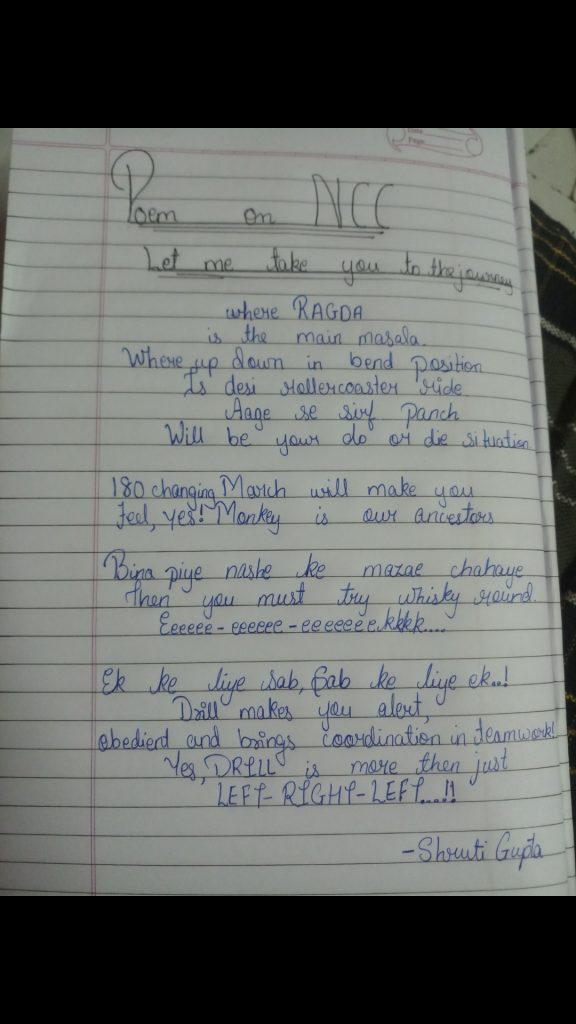 Date
Page
Poem on NCC
Let me take you to the journey
where RAGDA
is the main masala.
Where up down in bend position
Is desi rollercoaster ride
Aage se sirf Panch
Will be your do or die situation
180 changing March will make you
feel, yes! Monkey is our ancestors
Bina piye nashe ke mazae chahaye
then you must try whisky round.
Eeeeee-eeeeee-eeeeeee.kkkk....
Ek ke liye sab, Sab ke liye ek..!
Drill makes you alert,
obedient and brings coordination in teamwork!
Yes, DRILL is more then just
LEFT-RIGHT-LEFT....!!
-Shruti Gupta